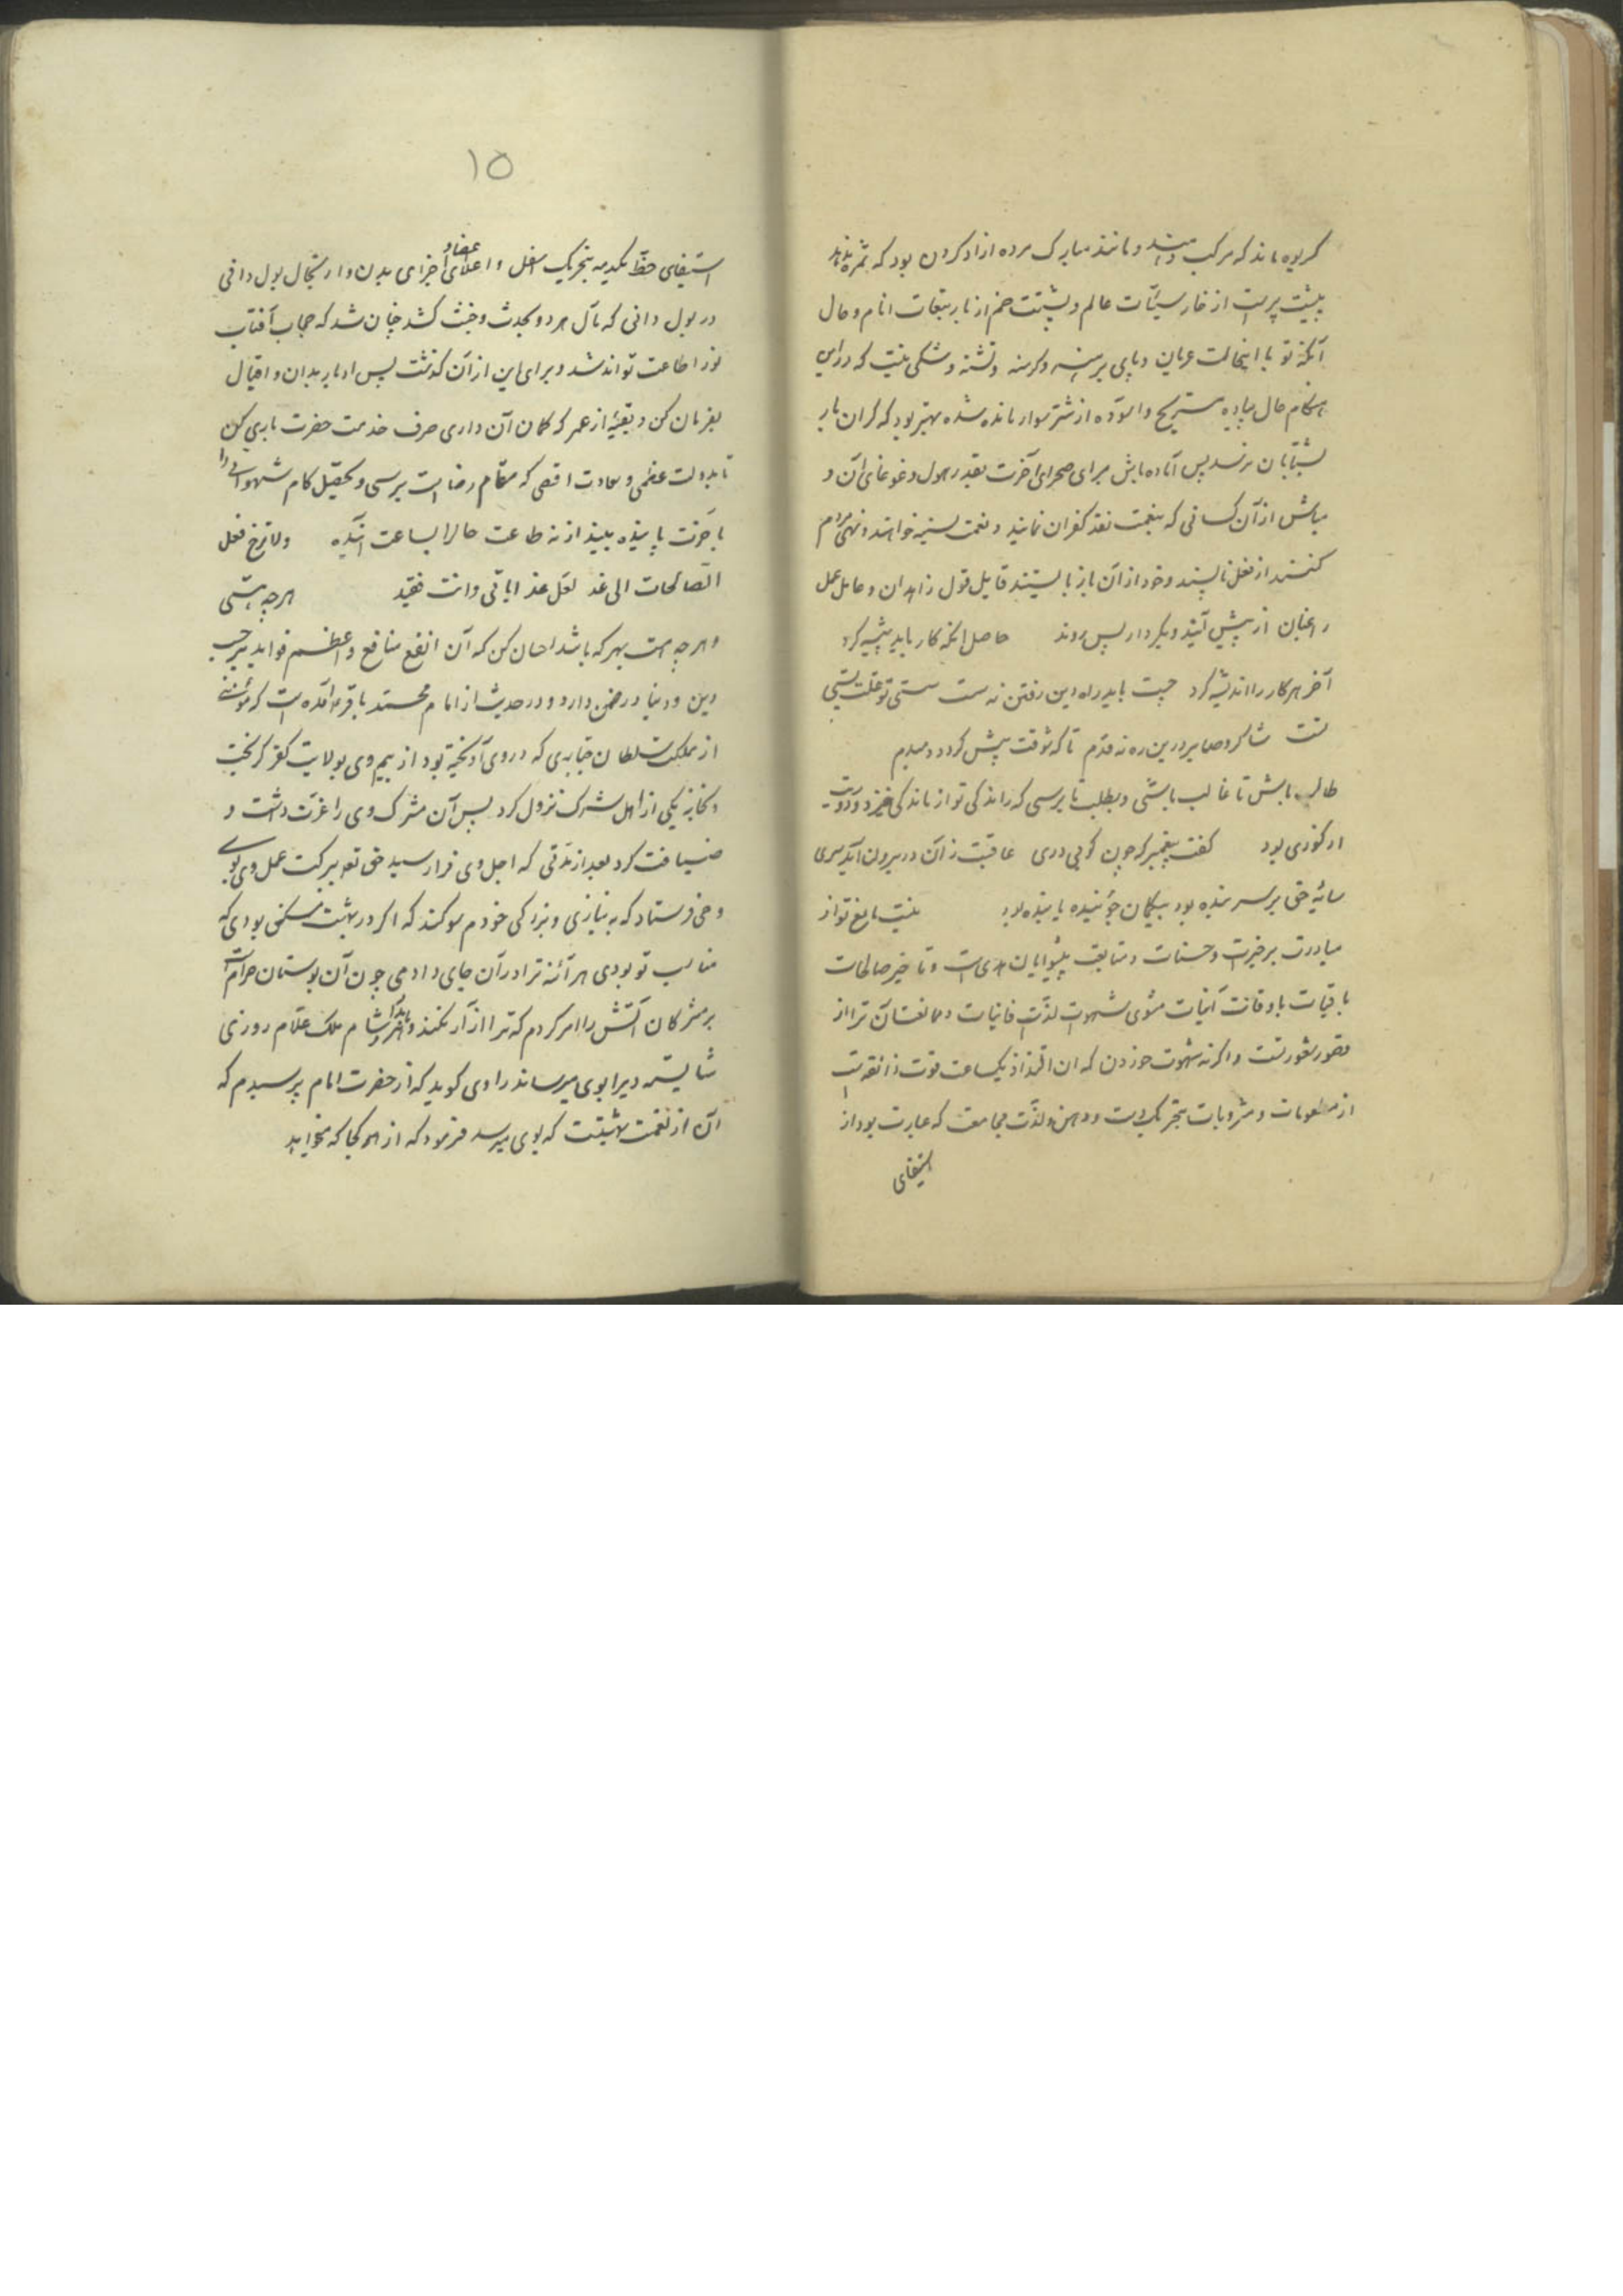 کریوه ماند که مرکب و مانند مبارک مرده ازاد کردن بود که ثمره ندهد
از خار سیّآت عالم و پشتت خم از بار تبعات انام و حال
آنکه تو با اینحالت عریان و پای برهنه و کرسنه و تشنه و شکی نیست که درین
هنکام حال پیاده مستریح و آسوده از شتر سوار مانده شده بهتر بود که کران بار
بشتابان نرسد پس آماده باش برای صحرای آخرت بقدر هول و غوغای آن و
مباش از آن کسانی که بنعمت نقد کفران نمایند و نعمت نسیه خواهند و نهی مردم
کنند از فعل ناپسند و خود از آن باز نایستند قایل قول زاهدان و عامل عمل
راغبان از پیش آیند و بکردار پس روند حاصل انکه کار باید پیشه کرد
آخر هر کار را اندیشه کرد چیست باید راه دین رفتن نه سست سستی تو علت پستی
تست شاکر و صابر درین ره نه قدم تا که توفیقت پیش کردد دمبدم
طالب باش تا غالب باشی و بطلب تا برسی که راندکی تو از ماندکی خیزد و
ار کوزی بود کفت پیغمبر که چون کوبی دری عاقبت زآن در برون آید سری
سایهٔ حق بر سر بنده بود بیکمان جوینده یابنده بود نیست مانع تو از
مبادرت بر خیرات و حسنات و متابعت پیشوایان هدی است و تأخیر صالحات
باقیات باوقات آتیات مثوی شهوات لذّت فانیات و ممانعتآن ترا از
قصور شعور تست و اکرنه شهوت خوردن که ان التذاذ یکساعت قوت ذائقه است
از مطعومات و مشروبات بتحریک و دهن و لذّت مجامعت که عبارت بود از
استیفای
۱۵
استیفای حظّ یکدمه بتحریک اسفل و اعلای اعضا و اجزای بدن و ارتجال بول دانی
در بول دانی که مآل هر دو بحدث و خبث کشد چنان شد که حجاب آفتاب
نور اطاعت تواند شد و برای این از آن کذشت پس ادبار بدان و اقبال
بفرمان کن و بقیهٔ از عمر که کمان آن داری صرف خدمت حضرت باری کن
تا بدولت عظمی و سعادت اقصی که مقام رضا است برسی و تحصیل کام شهوانی را
بآخرت پاینده بیند از نه طاعت حالرا بساعت آینده ولا ترج فعل
الصّالحات الی غد لعلّ غدا یاتی و انت فقید هر چه هستی
و هر چه هست بهر که باشد احسان کن که آن انفع منافع و اعظم فواید بر حسب
دین و دنیا در ضمن دارد و در حدیث از امام محمّد باقر آمده است که مؤمنی
از مملکت سلطان جبّاری که در وی آویخته بود از بیم وی بولایت کفر کریخت
و بخانه یکی از اهل شرک نزول کرد پس آن مشرک وی را عزّت داشت و
ضیافت کرد بعد از مدّتی که اجل وی فرا رسید حق تعه ببرکت عمل وی بوی
وحی فرستاد که به نیازی و بزرکی خودم سوکند که اکر در بهشت مسکنی بودی که
مناسب تو بودی هر آئنه ترا در آن جای دادمی چون آن بوستان حرام است
بر مشرکان آتش را امر کردم که ترا آزار نکند و بامداد و شام ملک علّام روزی
شایسته ویرا بوی میرساند راوی کوید که از حضرت امام پرسیدم که
آن از نعمت بهشتست که بوی میرسد فرمود که از هر کجا که میخواهد